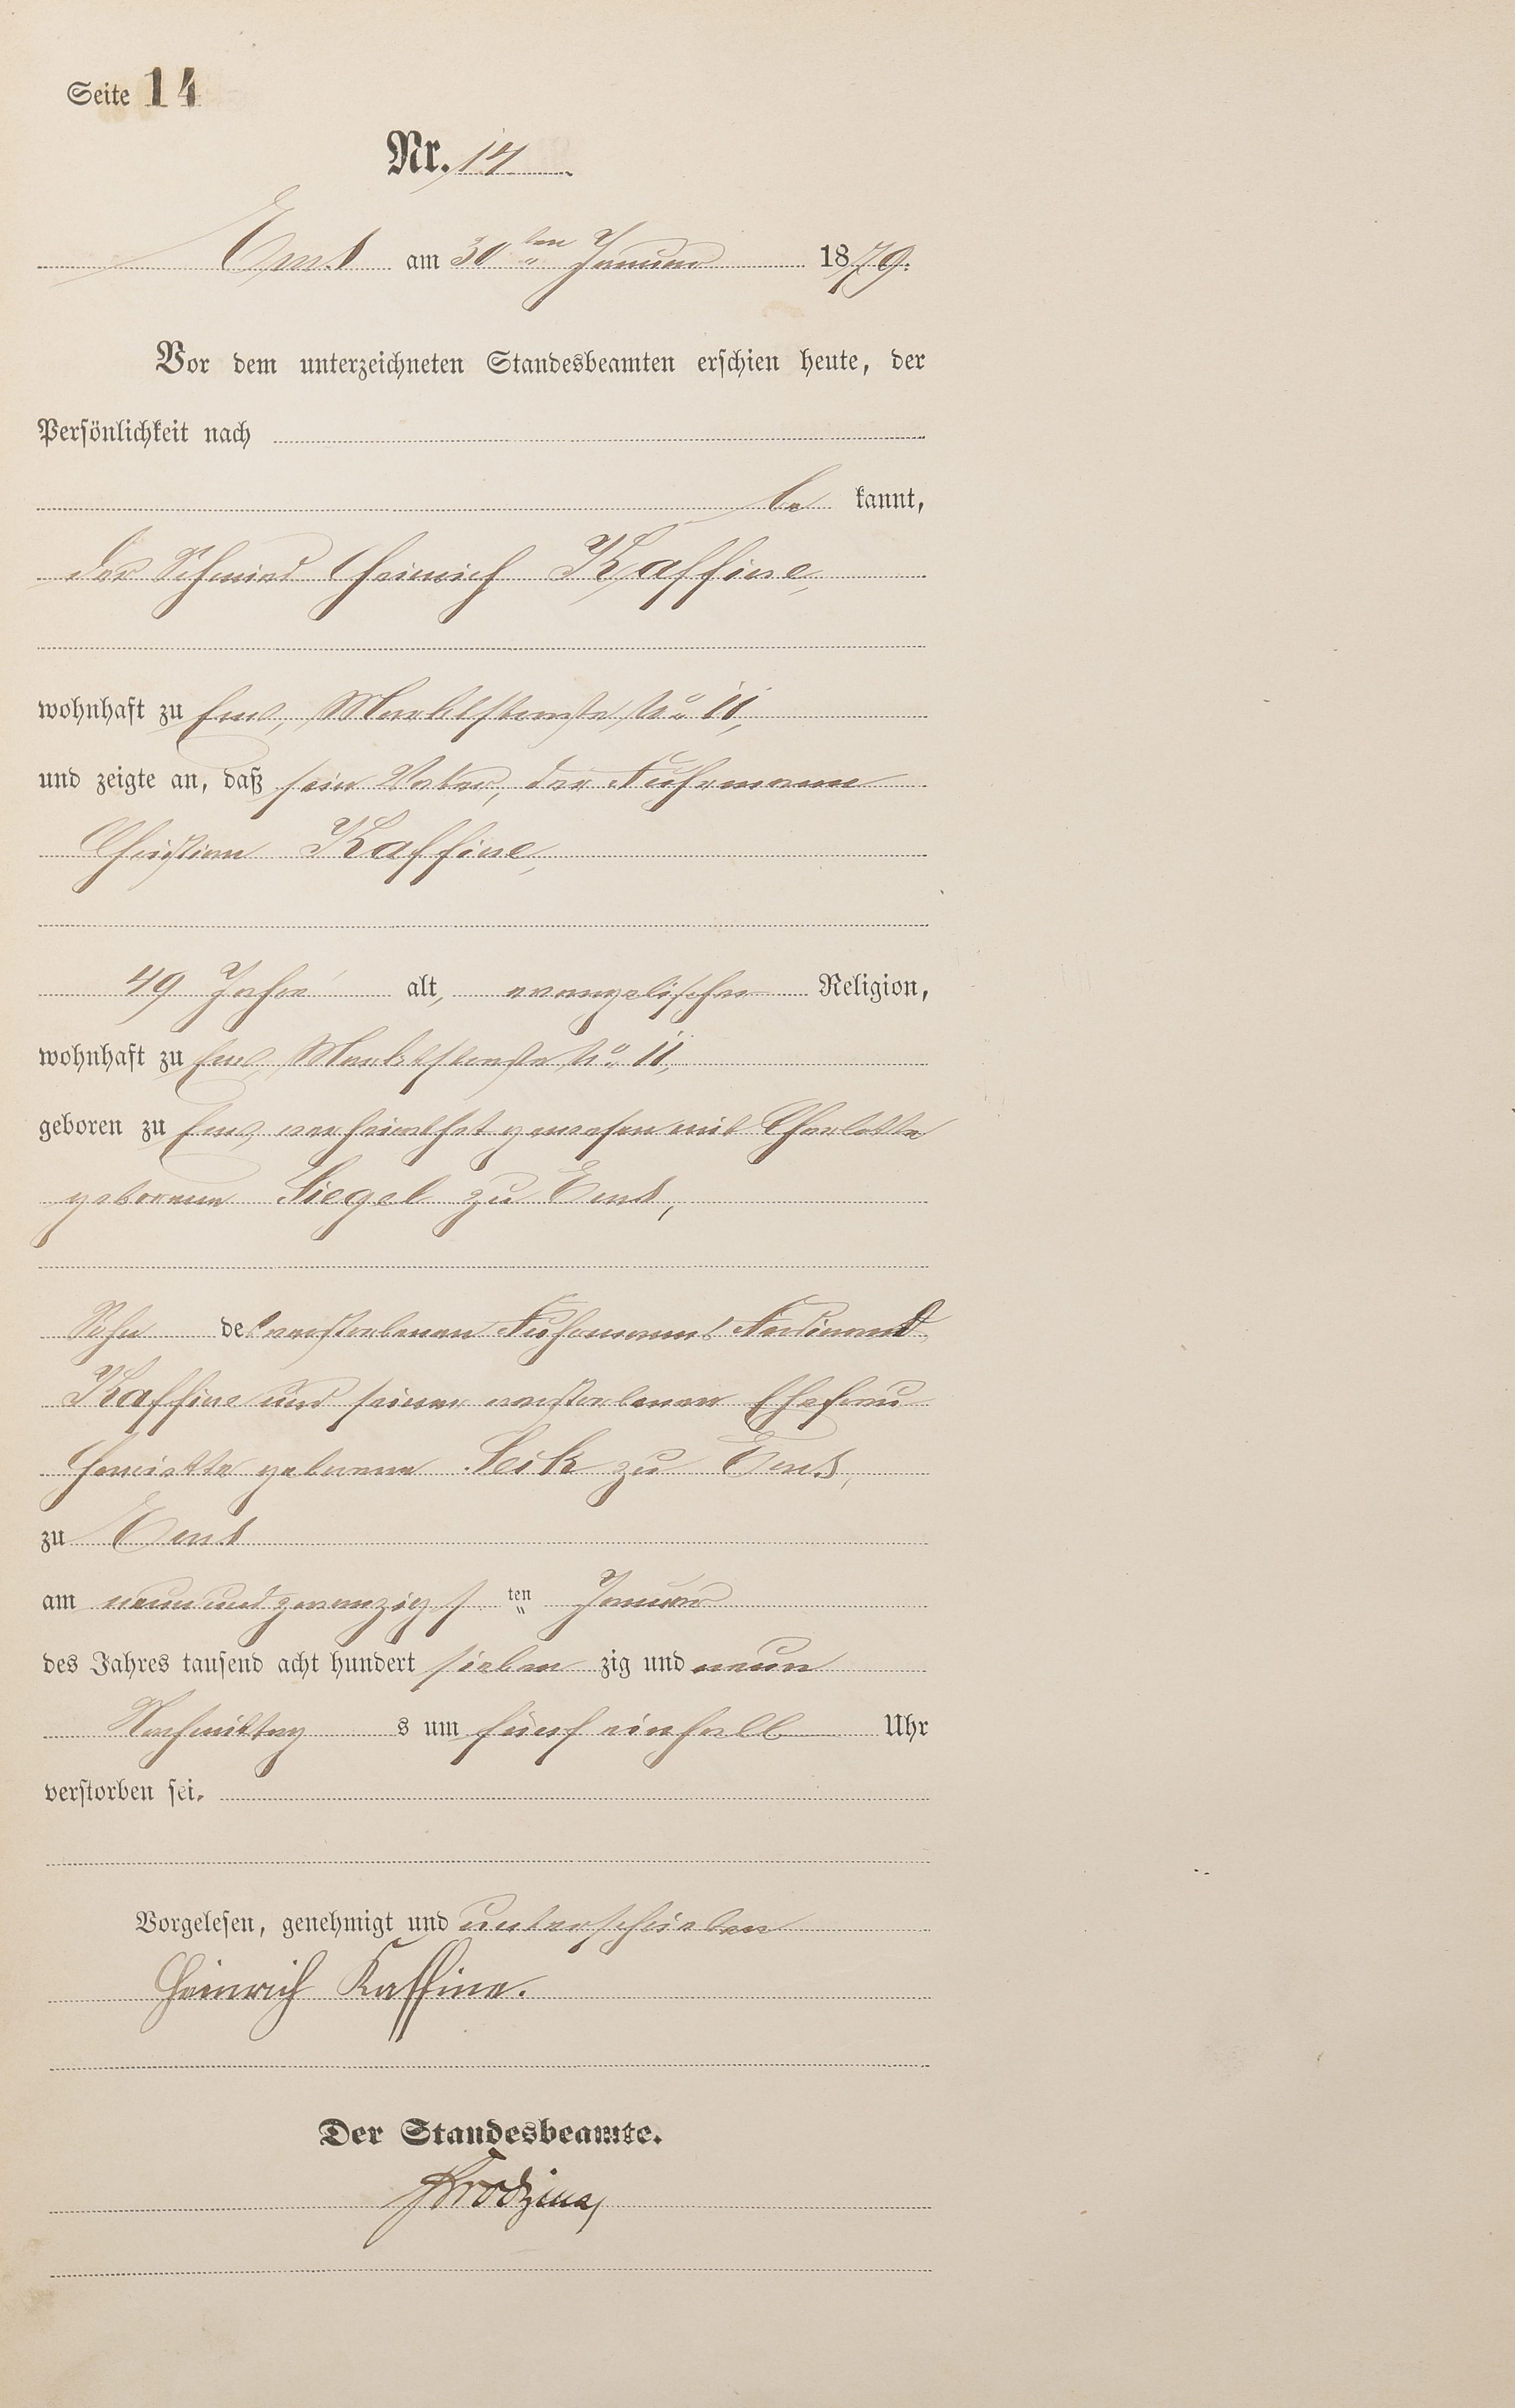 Seite 14
Nr. 14
Ems am 30ten Januar 1879.
Vor dem unterzeichneten Standesbeamten erschien heute, der
Persönlichkeit nach
be kannt,
der Schmied Heinrich Kaffine,
wohnhaft zu Ems, Marktstraße No 11,
und zeigte an, daß sein Vater, der Fuhrmann
Christian Kaffine,
49 Jahre alt, evangelischer Religion,
wohnhaft zu Ems, Marktstraße No 11,
geboren zu Ems, verheirathet gewesen mit Charlotte
geborenen Siegel zu Ems,
Sohn des verstorbenen Fuhrmanns Ferdinand
Kaffine und seiner verstorbenen Ehefrau
Henriette geborene Leik zu Ems,
zu Ems
am neun und zwanzigs ten Januar
des Jahres tausend acht hundert sieben zig und neun
Nachmittag s um fünf einhalb Uhr
verstorben sei.
Vorgelesen, genehmigt und unterschrieben
Heinrich Kaffine.
Der Standesbeamte.